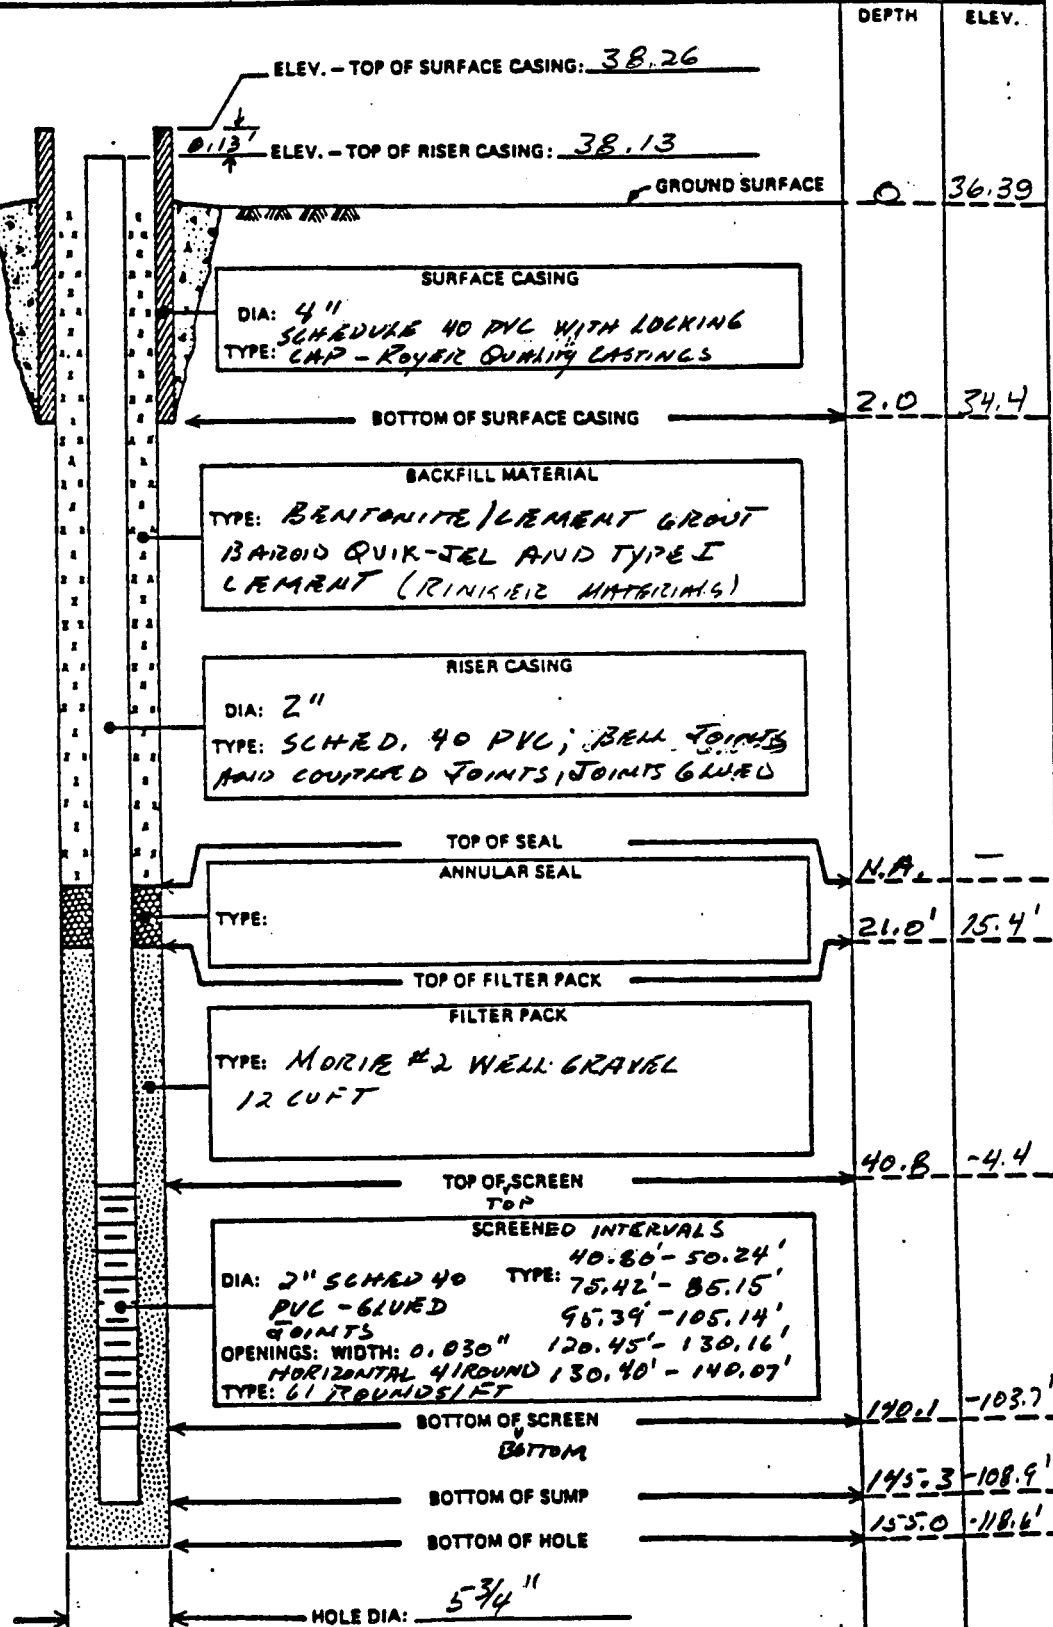 DEPTH ELEV.
ELEV. – TOP OF SURFACE CASING: 38.26
0.13' ELEV. – TOP OF RISER CASING: 38.13
GROUND SURFACE 0 36.39
SURFACE CASING
DIA: 4"
SCHEDULE 40 PVC WITH LOCKING
TYPE: CAP – ROYER QUALITY CASTINGS
BOTTOM OF SURFACE CASING 2.0 34.4
BACKFILL MATERIAL
TYPE: BENTONITE/CEMENT GROUT
BAROID QUIK-JEL AND TYPE I
CEMENT (RINKER MATERIALS)
RISER CASING
DIA: 2"
TYPE: SCHED. 40 PVC; BELL JOINTS
AND COUPLED JOINTS, JOINTS GLUED
TOP OF SEAL N.A. —
ANNULAR SEAL
TYPE:
21.0' 15.4'
TOP OF FILTER PACK
FILTER PACK
TYPE: MORIE #2 WELL GRAVEL
12 CUFT
TOP OF SCREEN 40.8 -4.4
TOP
SCREENED INTERVALS
40.80' - 50.24'
DIA: 2" SCHED 40 TYPE: 75.42' - 85.15'
PVC - GLUED 95.39' - 105.14'
JOINTS
OPENINGS: WIDTH: 0.030" 120.45' - 130.16'
HORIZONTAL 4/ROUND 130.40' - 140.07'
TYPE: 61 ROUNDS/FT
BOTTOM OF SCREEN 140.1 -103.7'
BOTTOM
BOTTOM OF SUMP 145.3 -108.9'
BOTTOM OF HOLE 155.0 -118.6'
HOLE DIA: 5 3/4"